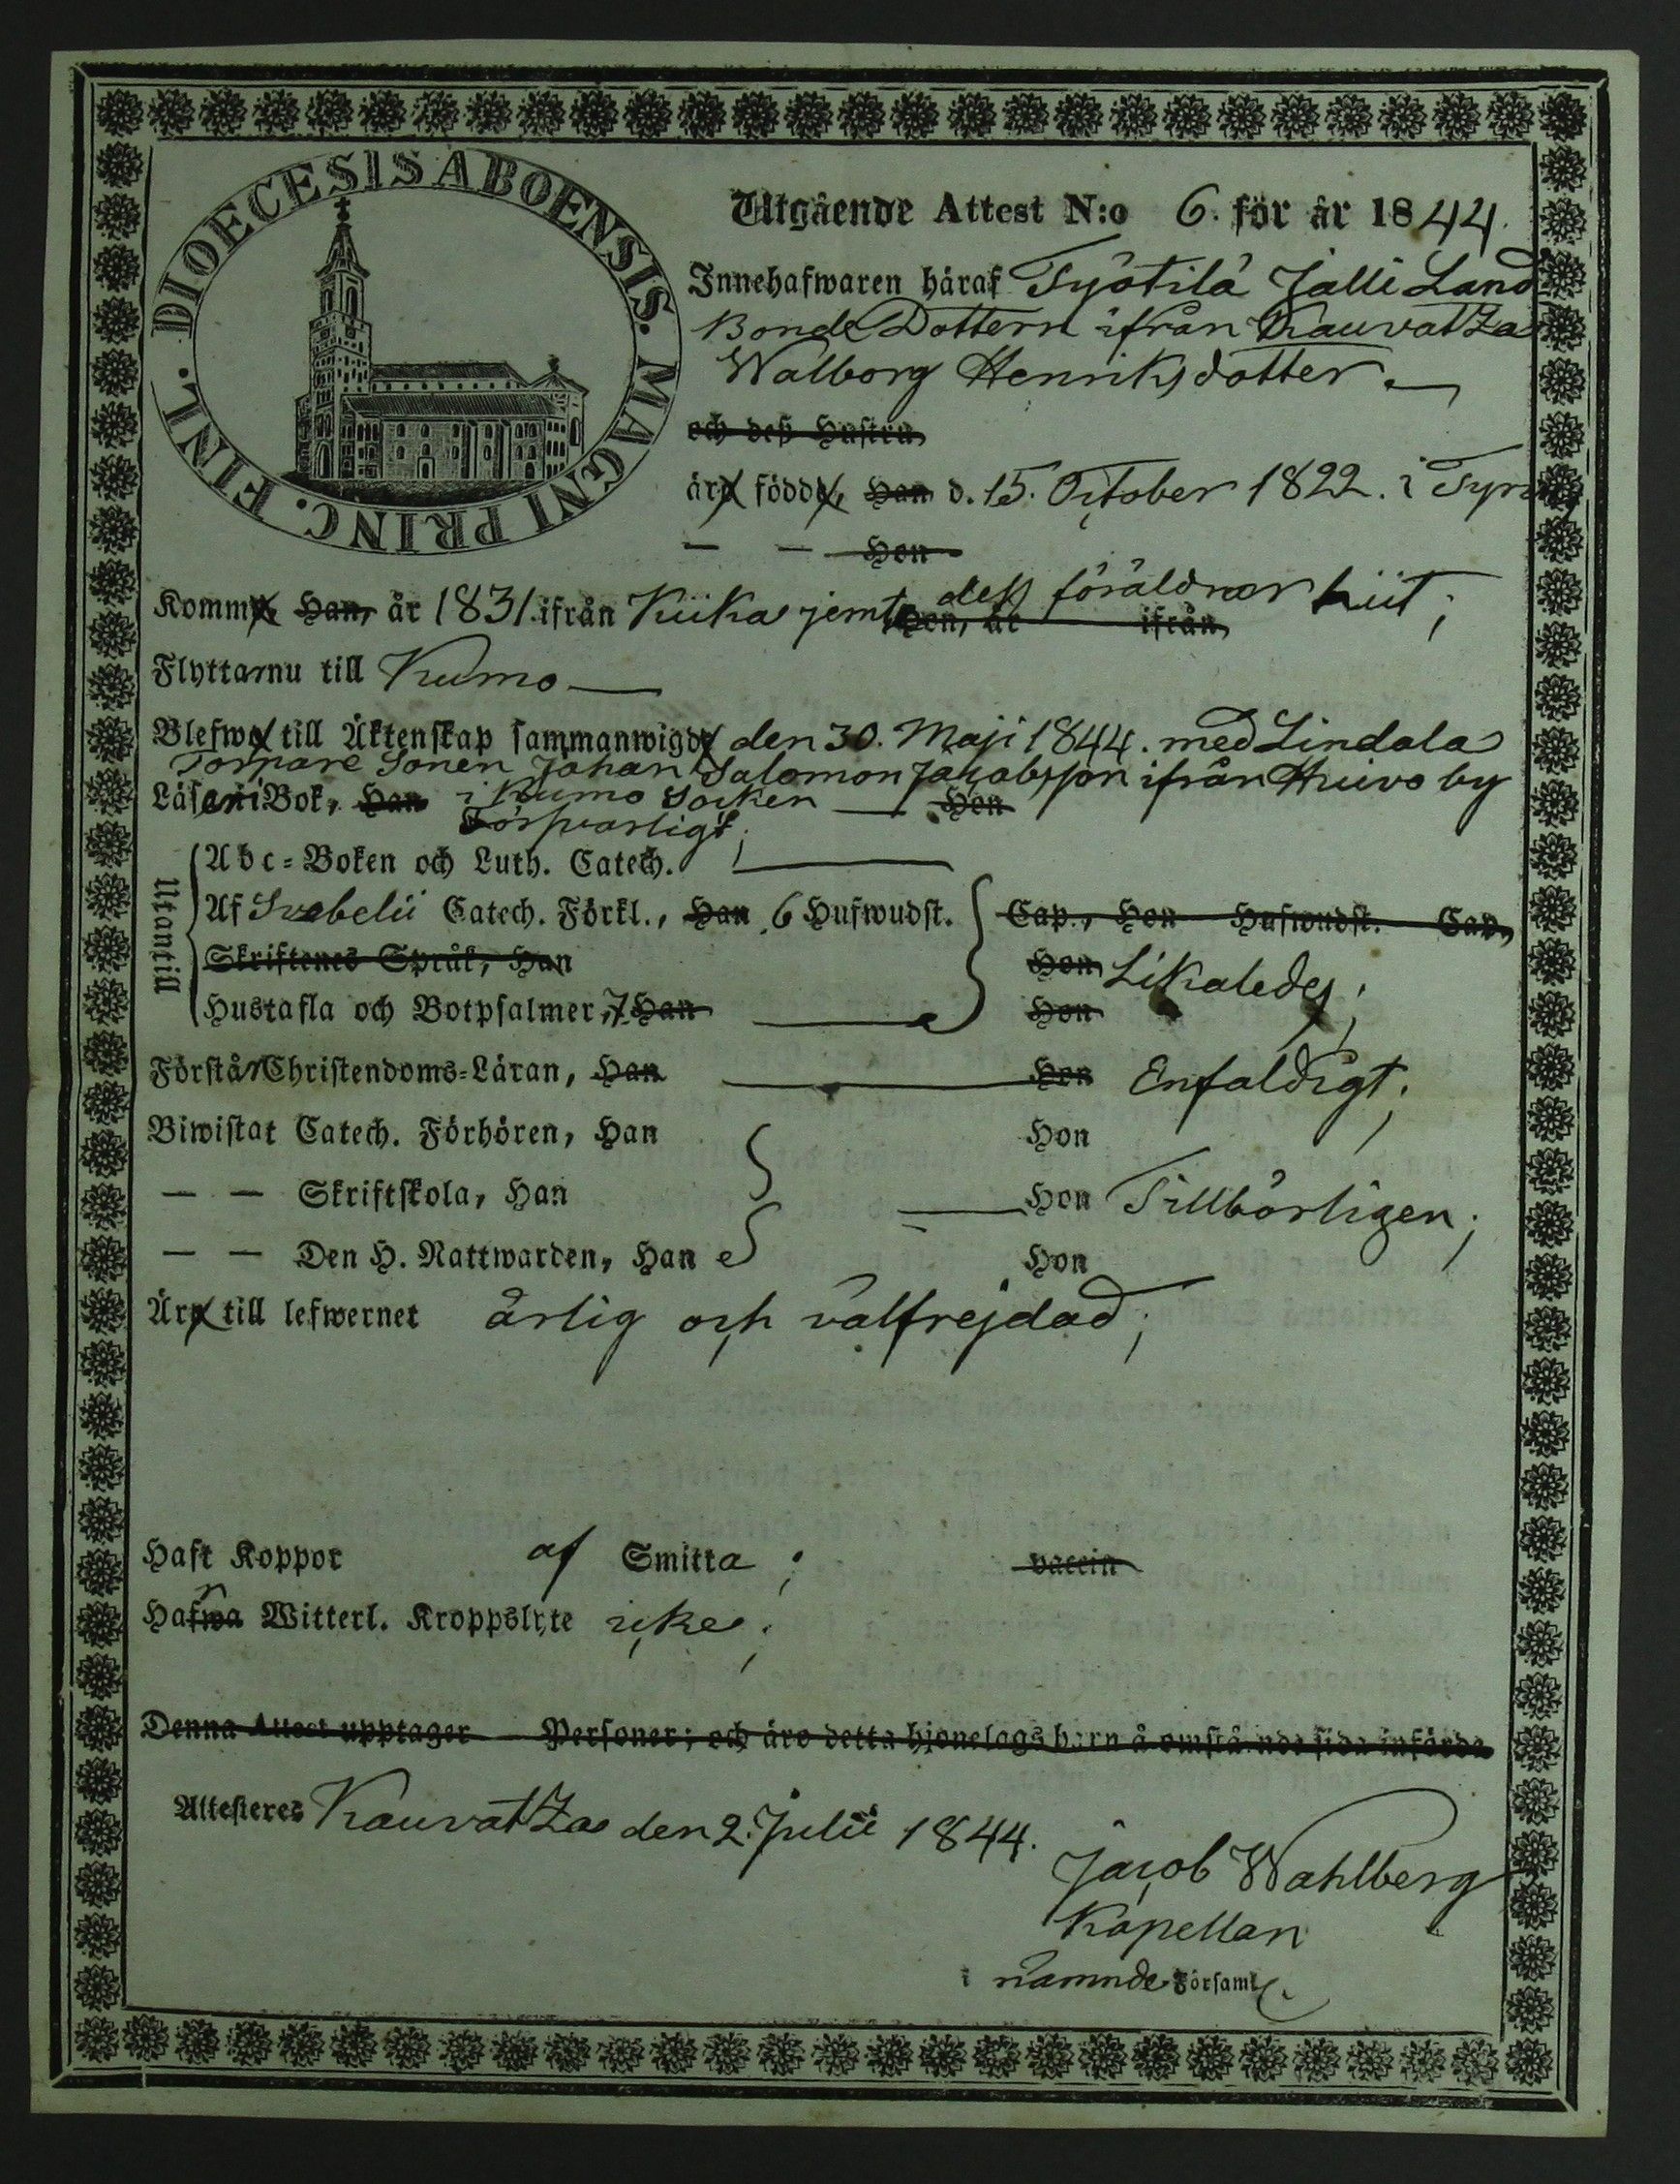 DIOECESIS ABOENSIS. MAGNI PRINC. FINL.
Utgående Attest N:o 6. för år 1844.
Innehafwaren häraf Työtilä Jalli Land
Bonde Dottern ifrån Kauvatza
Walborg Henriksdotter
och deß Hustru,
äro födde, Han d. 15. October 1822. i Tyrvis
— — Hon
Komme, Han, år 1831. ifrån Kiika jemte dess föräldrar hiit;
Hon, år ifrån,
Flyttar nu till Kumo
Blefwo till Äktenskap sammanwigde den 30. Maji 1844. med Lindala
Torpare Sonen Johan Salomon Jakobsson ifrån Huivo by
i Kumo Socken
Läser i Bok, Han Försvarligt; Hon
Utantill
Abc-Boken och Luth. Catech.
Af Svebelii Catech. Förkl., Han 6 Hufwudst. Cap., Hon Hufwudst. Cap.,
Skriftenes Språk, Han Hon Likaledes;
Hustafla och Botpsalmer, 7. Han Hon
Förstår Christendoms-Läran, Han Hon Enfaldigt;
Biwistat Catech. Förhören, Han Hon
— — Skriftskola, Han Hon Tillbörligen;
— — Den H. Nattwarden, Han Hon
Äro till lefwernet ärlig och välfrejdad;
Haft Koppor af Smitta; vaccin
Hafwa Witterl. Kroppslyte icke;
Denna Attest upptager Personer; och äro detta hjonelags barn å omstående sida införda
Attesteres Kauvatza den 2. Julii 1844.
Jacob Wahlberg
Kapellan
i nämnde Församl.